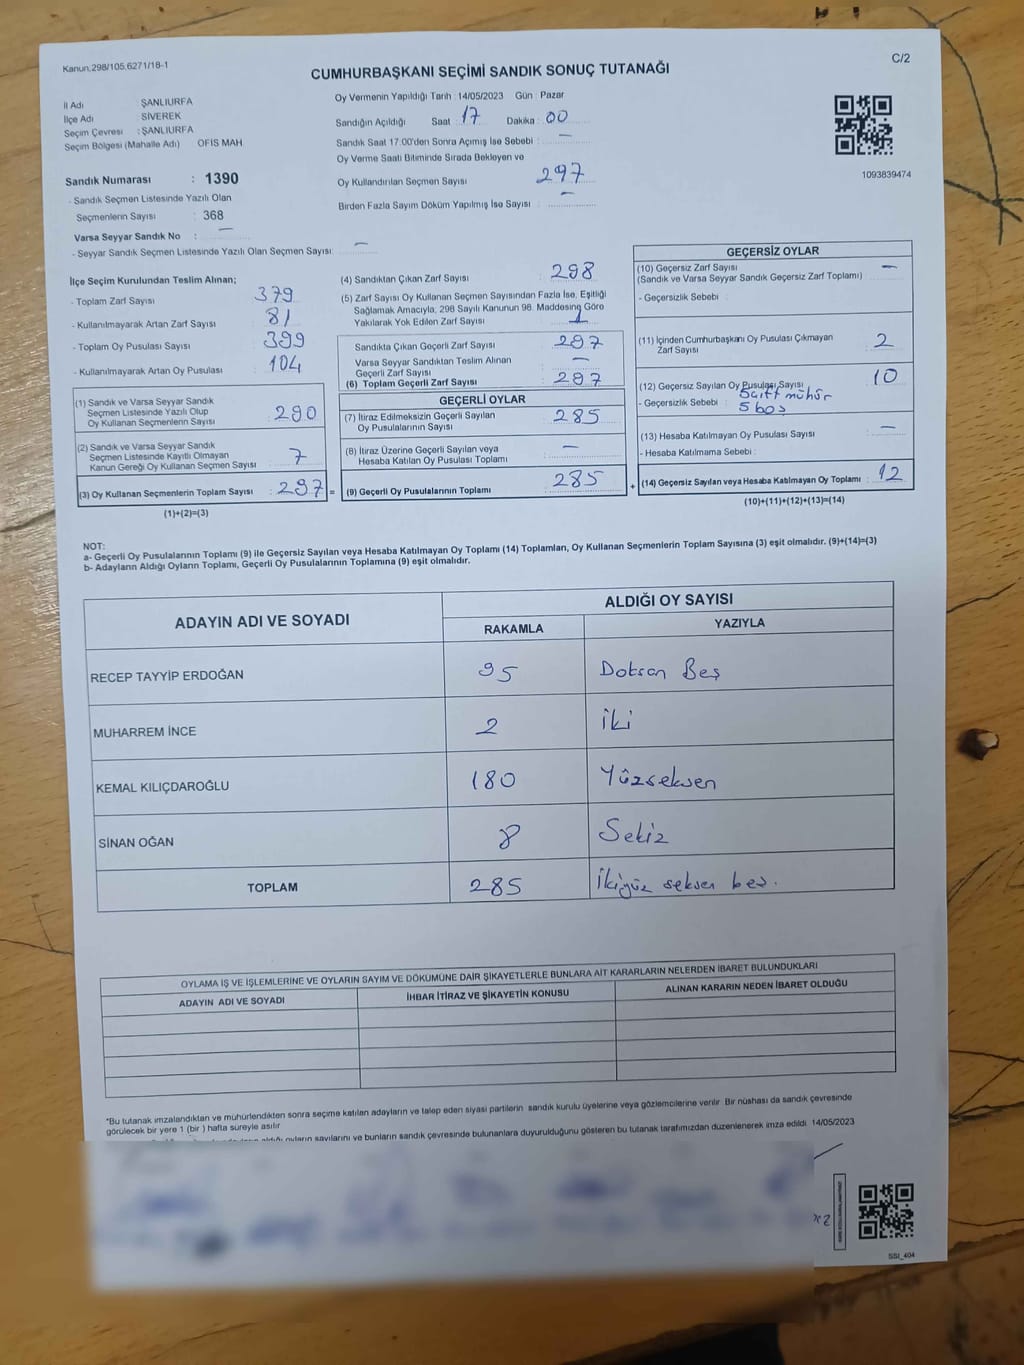 Kanun:298/105.6271/18-1
C/2
CUMHURBAŞKANI SEÇİMİ SANDIK SONUÇ TUTANAĞI
İl Adı ŞANLIURFA
İlçe Adı : SİVEREK
Seçim Çevresi : ŞANLIURFA
Seçim Bölgesi (Mahalle Adı) OFİS MAH
Sandık Numarası : 1390
- Sandık Seçmen Listesinde Yazılı Olan
Seçmenlerin Sayısı : 368
Varsa Seyyar Sandık No : —
- Seyyar Sandık Seçmen Listesinde Yazılı Olan Seçmen Sayısı: —
Oy Vermenin Yapıldığı Tarih : 14/05/2023 Gün : Pazar
Sandığın Açıldığı Saat : 17 Dakika : 00
Sandık Saat 17:00'den Sonra Açımış İse Sebebi : —
Oy Verme Saati Bitiminde Sırada Bekleyen ve
Oy Kullandırılan Seçmen Sayısı : 297
Birden Fazla Sayım Döküm Yapılmış İse Sayısı : —
1093839474
İlçe Seçim Kurulundan Teslim Alınan;
- Toplam Zarf Sayısı : 379
- Kullanılmayarak Artan Zarf Sayısı : 81
- Toplam Oy Pusulası Sayısı : 399
- Kullanılmayarak Artan Oy Pusulası : 104
(1) Sandık ve Varsa Seyyar Sandık
Seçmen Listesinde Yazılı Olup
Oy Kullanan Seçmenlerin Sayısı : 290
(2) Sandık ve Varsa Seyyar Sandık
Seçmen Listesinde Kayıtlı Olmayan
Kanun Gereği Oy Kullanan Seçmen Sayısı : 7
(3) Oy Kullanan Seçmenlerin Toplam Sayısı : 297 =
(1)+(2)=(3)
(4) Sandıktan Çıkan Zarf Sayısı : 298
(5) Zarf Sayısı Oy Kullanan Seçmen Sayısından Fazla İse, Eşitliği
Sağlamak Amacıyla, 298 Sayılı Kanunun 98. Maddesine Göre
Yakılarak Yok Edilen Zarf Sayısı : 1
Sandıkta Çıkan Geçerli Zarf Sayısı : 297
Varsa Seyyar Sandıktan Teslim Alınan
Geçerli Zarf Sayısı : —
(6) Toplam Geçerli Zarf Sayısı : 297
GEÇERLİ OYLAR
(7) İtiraz Edilmeksizin Geçerli Sayılan
Oy Pusulalarının Sayısı : 285
(8) İtiraz Üzerine Geçerli Sayılan veya
Hesaba Katılan Oy Pusulası Toplamı : —
(9) Geçerli Oy Pusulalarının Toplamı : 285 +
GEÇERSİZ OYLAR
(10) Geçersiz Zarf Sayısı
(Sandık ve Varsa Seyyar Sandık Geçersiz Zarf Toplamı) : —
- Geçersizlik Sebebi :
(11) İçinden Cumhurbaşkanı Oy Pusulası Çıkmayan
Zarf Sayısı : 2
(12) Geçersiz Sayılan Oy Pusulası Sayısı : 10
- Geçersizlik Sebebi : 5 çift mühür
5 boş
(13) Hesaba Katılmayan Oy Pusulası Sayısı : —
- Hesaba Katılmama Sebebi :
(14) Geçersiz Sayılan veya Hesaba Katılmayan Oy Toplamı : 12
(10)+(11)+(12)+(13)=(14)
NOT:
a- Geçerli Oy Pusulalarının Toplamı (9) ile Geçersiz Sayılan veya Hesaba Katılmayan Oy Toplamı (14) Toplamları, Oy Kullanan Seçmenlerin Toplam Sayısına (3) eşit olmalıdır. (9)+(14)=(3)
b- Adayların Aldığı Oyların Toplamı, Geçerli Oy Pusulalarının Toplamına (9) eşit olmalıdır.
ADAYIN ADI VE SOYADI
ALDIĞI OY SAYISI
RAKAMLA YAZIYLA
RECEP TAYYİP ERDOĞAN 95 Doksan Beş
MUHARREM İNCE 2 İki
KEMAL KILIÇDAROĞLU 180 Yüzseksen
SİNAN OĞAN 8 Sekiz
TOPLAM 285 İkiyüz seksen beş.
OYLAMA İŞ VE İŞLEMLERİNE VE OYLARIN SAYIM VE DÖKÜMÜNE DAİR ŞİKAYETLERLE BUNLARA AİT KARARLARIN NELERDEN İBARET BULUNDUKLARI
ADAYIN ADI VE SOYADI İHBAR İTİRAZ VE ŞİKAYETİN KONUSU ALINAN KARARIN NEDEN İBARET OLDUĞU
*Bu tutanak imzalandıktan ve mühürlendikten sonra seçime katılan adayların ve talep eden siyasi partilerin sandık kurulu üyelerine veya gözlemcilerine verilir. Bir nüshası da sandık çevresinde
görülecek bir yere 1 (bir) hafta süreyle asılır
oyların sayılarını ve bunların sandık çevresinde bulunanlara duyurulduğunu gösteren bu tutanak tarafımızdan düzenlenerek imza edildi. 14/05/2023
SSI_404